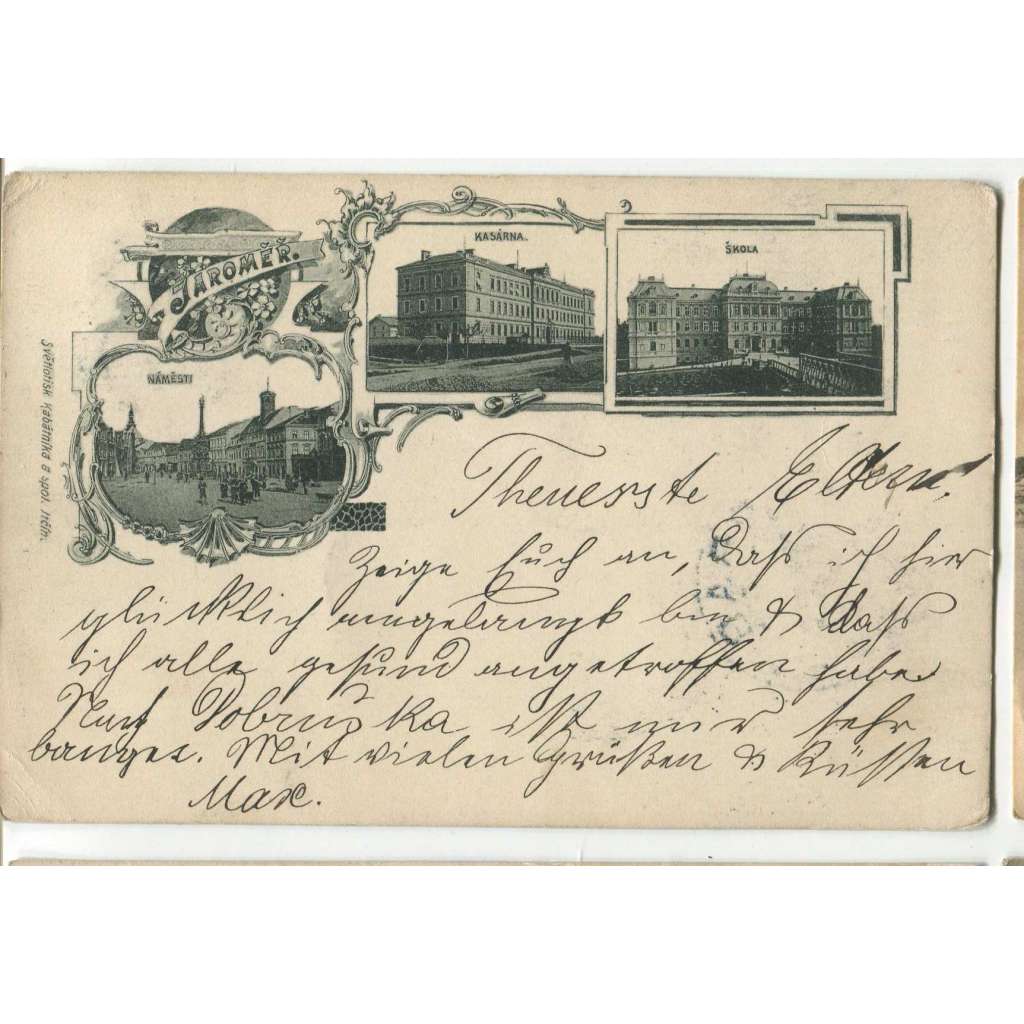 JAROMĚŘ.
KASÁRNA.
ŠKOLA
NÁMĚSTÍ
Světlotisk Kabátníka a spol. Jičín.
Theuerste Eltern!
Zeige Euch an, daß ich hier
glücklich angelangt bin & daß
ich alle gesund angetroffen habe.
Nach Dobruska ist mir sehr
banges. Mit vielen Grüßen & Küssen
Max.